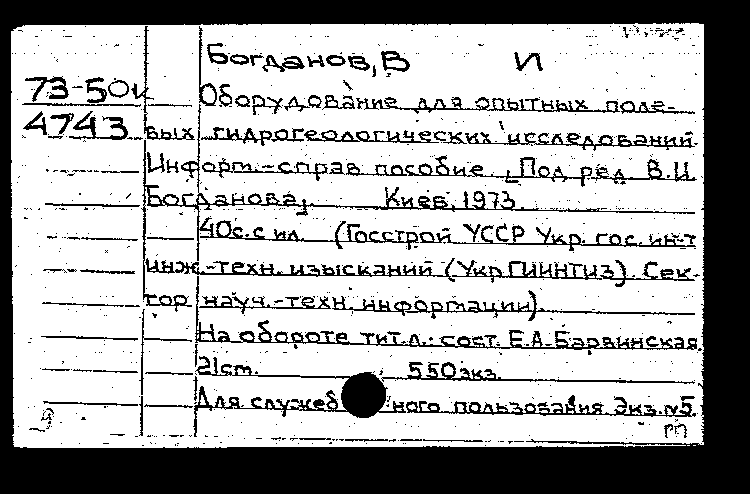 Богданов, В И
73-50к
Оборудование для опытных поле-
4743
вых гидрогеологических исследований.
Информ.-справ пособие. [Под ред. В.И.
Богданова]. Киев, 1973.
40с. с ил. (Госстрой УССР Укр. гос. ин-т
инж.-техн. изысканий (УкрГИИНТИЗ). Сек-
тор науч.-техн. информации).
На обороте тит.л.: сост. Е.А.Барвинская
21см. 550экз.
Для служебного пользования Экз.№5.
9
рп